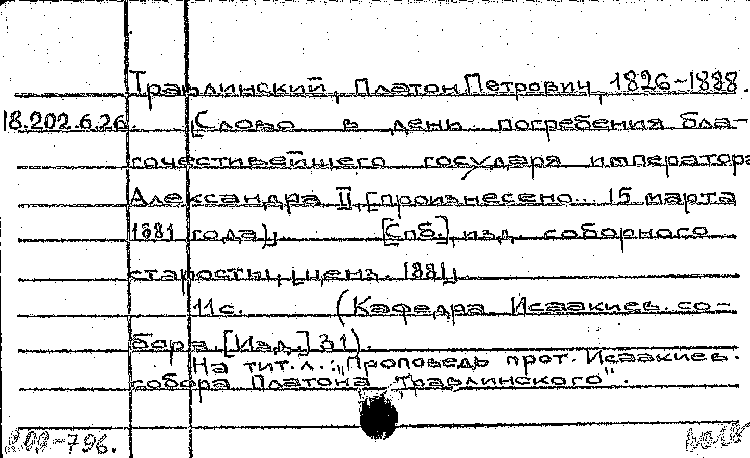 Травлинский, Платон Петрович, 1826-1888.
18.202.6.26. [Слово в день погребения бла-
гочестивейшего государя императора
Александра II, [произнесено.. 15 марта
1881 года)] [Спб.], изд. соборного
старосты, [ценз. 1881].
11 с. (Кафедра Исаакиев. со-
бора. [Изд.] 31).
На тит. л.: "Проповедь прот. Исаакиев.
собора Платона Травлинского".
-796.